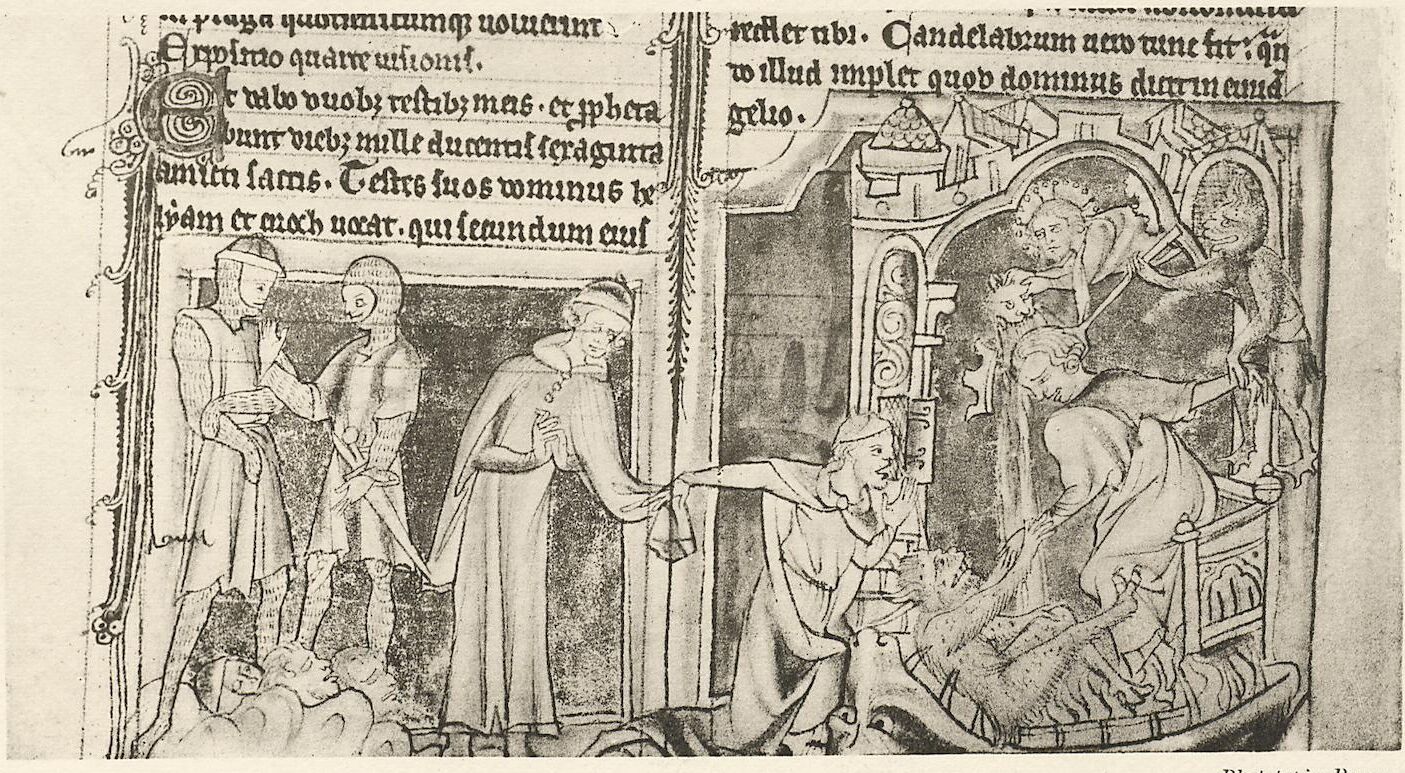 in plaga quotienscumq; uoluerint
Expositio quarte uisionis.
Et dabo duobz testibz meis. et ppheta
bunt diebz mille ducentis sexaginta
amicti saccis. Testes suos dominus he
lyam et enoch uocat. qui secundum eius
reflet tibi. Candelabrum uero tunc fit. qn
do illud implet quod dominus dicit in euua
gelio.